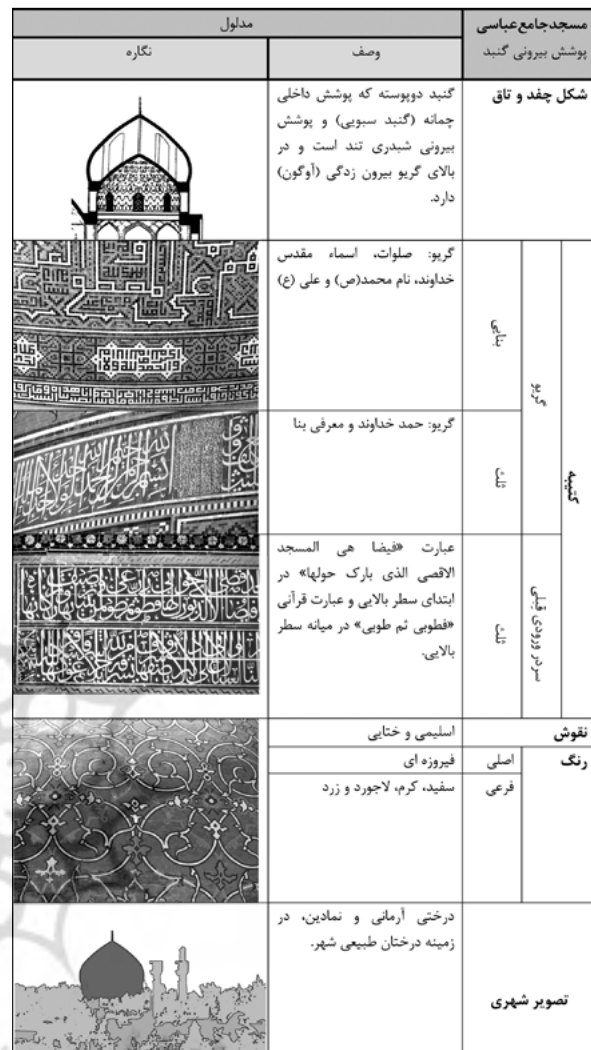 مسجدجامع‌عباسی
پوشش بیرونی گنبد
مدلول
وصف
نگاره
شکل چفد و تاق
گنبد دوپوسته که پوشش داخلی
چمانه (گنبد سبویی) و پوشش
بیرونی شبدری تند است و در
بالای گریو بیرون زدگی (آوگون)
دارد.
کتیبه
گریو
بنایی
گریو: صلوات، اسماء مقدس
خداوند، نام محمد(ص) و علی (ع)
ثلث
گریو: حمد خداوند و معرفی بنا
سردر ورودی قبلی
ثلث
عبارت «فیضا هی المسجد
الاقصی الذی بارک حولها» در
ابتدای سطر بالایی و عبارت قرآنی
«فطوبی ثم طوبی» در میانه سطر
بالایی.
نقوش
اسلیمی و ختایی
رنگ
اصلی
فیروزه ای
فرعی
سفید، کرم، لاجورد و زرد
تصویر شهری
درختی آرمانی و نمادین، در
زمینه درختان طبیعی شهر.